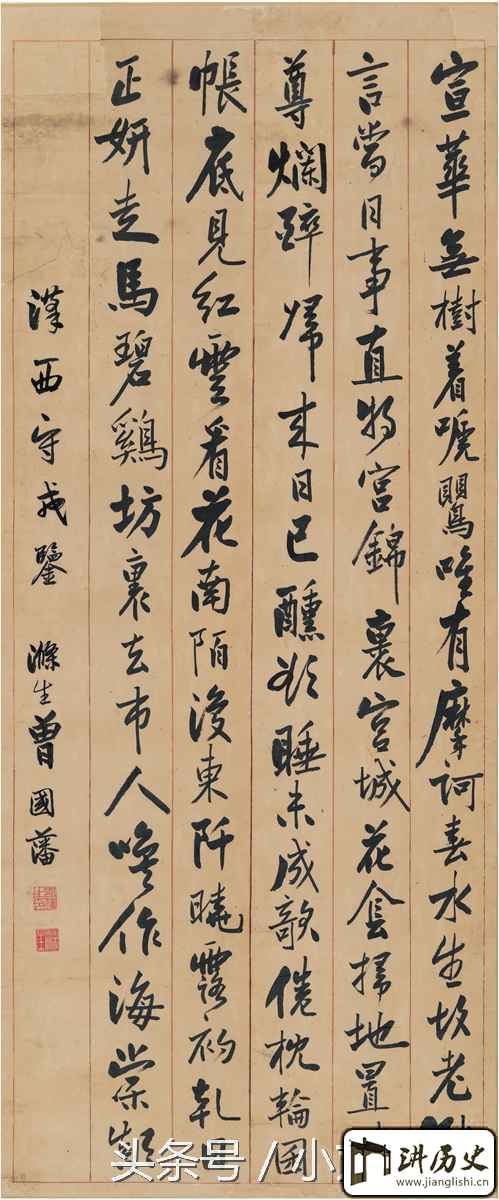 宣華無樹着嗁鸎唯有摩訶春水生故老
言當日事直將宮錦裹宮城花侌掃地置
尊爛醉歸来日已醺欲睡未成欹倦枕輪囷
帳底見紅雲看花南陌復東阡曉露初乾
正妍走馬碧鷄坊裏去市人喚作海棠顛
漢西守戎鑒 滌生曾國藩
头条号 / 小
讲历史
www.jianglishi.cn